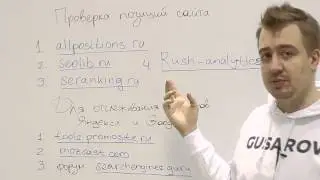 Проверка позиций сайта
1. allpositions.ru
2. seolib.ru
4. Rush-analytics
3. seranking.ru
Для отслеживания
Яндекса и
1. tools.promosite.ru
2. mozcast.com
3 форум searchengines.guru
GUSAROV